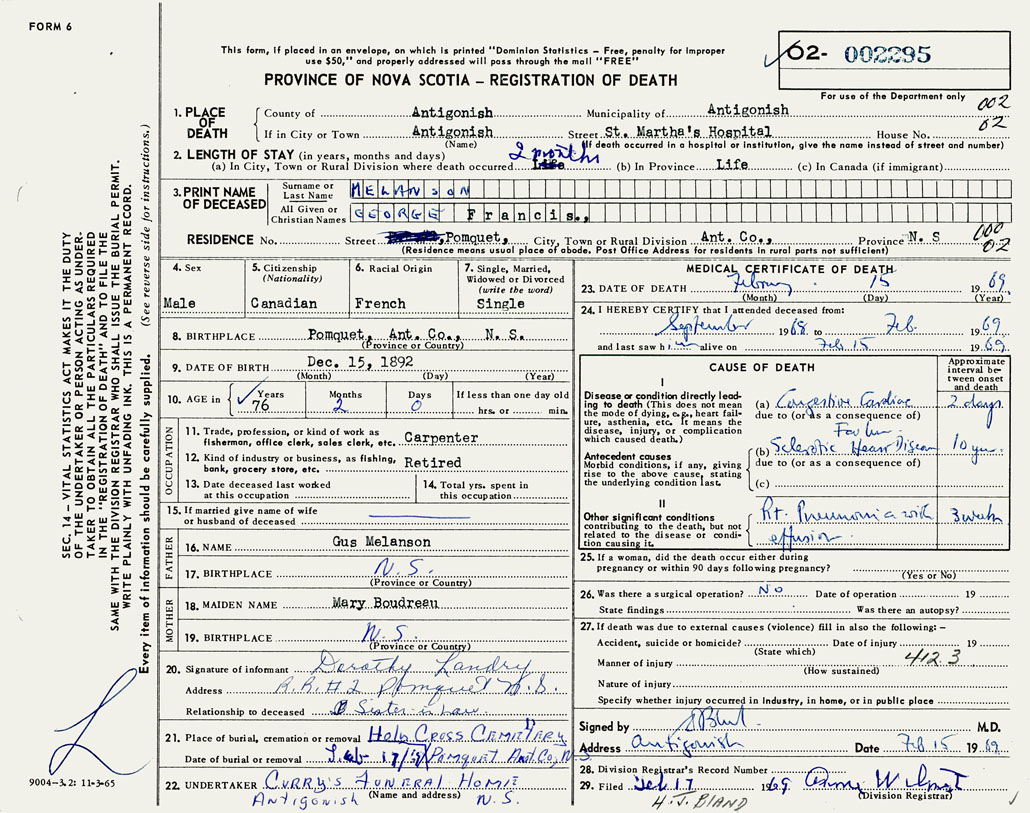 FORM 6
This form, if placed in an envelope, on which is printed "Dominion Statistics – Free, penalty for improper
use $50," and properly addressed will pass through the mail "FREE"
PROVINCE OF NOVA SCOTIA – REGISTRATION OF DEATH
62- 002295
For use of the Department only
002
02
1. PLACE OF DEATH
County of Antigonish Municipality of Antigonish
If in City or Town Antigonish Street St. Martha's Hospital House No.
(Name) (If death occurred in a hospital or institution, give the name instead of street and number)
2. LENGTH OF STAY (in years, months and days)
(a) In City, Town or Rural Division where death occurred 2 months Life (b) In Province Life (c) In Canada (if immigrant)
3. PRINT NAME OF DECEASED
Surname or Last Name MELANSON
All Given or Christian Names GEORGE Francis.,
RESIDENCE No. Street ,Pomquet, City, Town or Rural Division Ant. Co., Province N. S
(Residence means usual place of abode. Post Office Address for residents in rural parts not sufficient)
000
02
4. Sex
Male
5. Citizenship (Nationality)
Canadian
6. Racial Origin
French
7. Single, Married, Widowed or Divorced (write the word)
Single
8. BIRTHPLACE Pomquet, Ant. Co., N. S.
(Province or Country)
9. DATE OF BIRTH Dec. 15, 1892
(Month) (Day) (Year)
10. AGE in Years 76 Months 2 Days 0 If less than one day old hrs. or min.
OCCUPATION
11. Trade, profession, or kind of work as fisherman, office clerk, sales clerk, etc. Carpenter
12. Kind of industry or business, as fishing, bank, grocery store, etc. Retired
13. Date deceased last worked at this occupation
14. Total yrs. spent in this occupation
15. If married give name of wife or husband of deceased
FATHER
16. NAME Gus Melanson
17. BIRTHPLACE N.S.
(Province or Country)
MOTHER
18. MAIDEN NAME Mary Boudreau
19. BIRTHPLACE N.S.
(Province or Country)
20. Signature of informant Dorothy Landry
Address R.R.#2 Pomquet N.S.
Relationship to deceased Sister in Law.
21. Place of burial, cremation or removal Holy Cross Cemetary
Date of burial or removal Feb 17/69 Pomquet Ant. Co, N.S.
22. UNDERTAKER Curry's Funeral Home
(Name and address)
Antigonish N.S.
MEDICAL CERTIFICATE OF DEATH
23. DATE OF DEATH February 15 1969
(Month) (Day) (Year)
24. I HEREBY CERTIFY that I attended deceased from:
September 1968 to Feb. 1969
and last saw him alive on Feb 15 1969.
CAUSE OF DEATH
Approximate interval between onset and death
I
Disease or condition directly leading to death (This does not mean the mode of dying, e.g., heart failure, asthenia, etc. It means the disease, injury, or complication which caused death.)
(a) Congestive Cardiac 2 days
due to (or as a consequence of)
Failure
Antecedent causes
Morbid conditions, if any, giving rise to the above cause, stating the underlying condition last.
(b) Sclerotic Heart Disease 10 yrs.
due to (or as a consequence of)
(c)
II
Other significant conditions contributing to the death, but not related to the disease or condition causing it.
Rt. Pneumonia with 3 weeks
effusion.
25. If a woman, did the death occur either during pregnancy or within 90 days following pregnancy?
(Yes or No)
26. Was there a surgical operation? NO Date of operation 19
State findings Was there an autopsy?
27. If death was due to external causes (violence) fill in also the following: –
Accident, suicide or homicide? Date of injury 19
(State which)
412.3
Manner of injury
(How sustained)
Nature of injury
Specify whether injury occurred in industry, in home, or in public place
Signed by M.D.
Address Antigonish Date Feb 15 1969
28. Division Registrar's Record Number
29. Filed Feb 17 1969
(Division Registrar)
H.J. BLAND
SEC. 14 – VITAL STATISTICS ACT MAKES IT THE DUTY
OF THE UNDERTAKER OR PERSON ACTING AS UNDER-
TAKER TO OBTAIN ALL THE PARTICULARS REQUIRED
IN THE "REGISTRATION OF DEATH" AND TO FILE THE
SAME WITH THE DIVISION REGISTRAR WHO SHALL ISSUE THE BURIAL PERMIT.
WRITE PLAINLY WITH UNFADING INK. THIS IS A PERMANENT RECORD.
Every item of information should be carefully supplied. (See reverse side for instructions.)
9004-3.2: 11-3-65